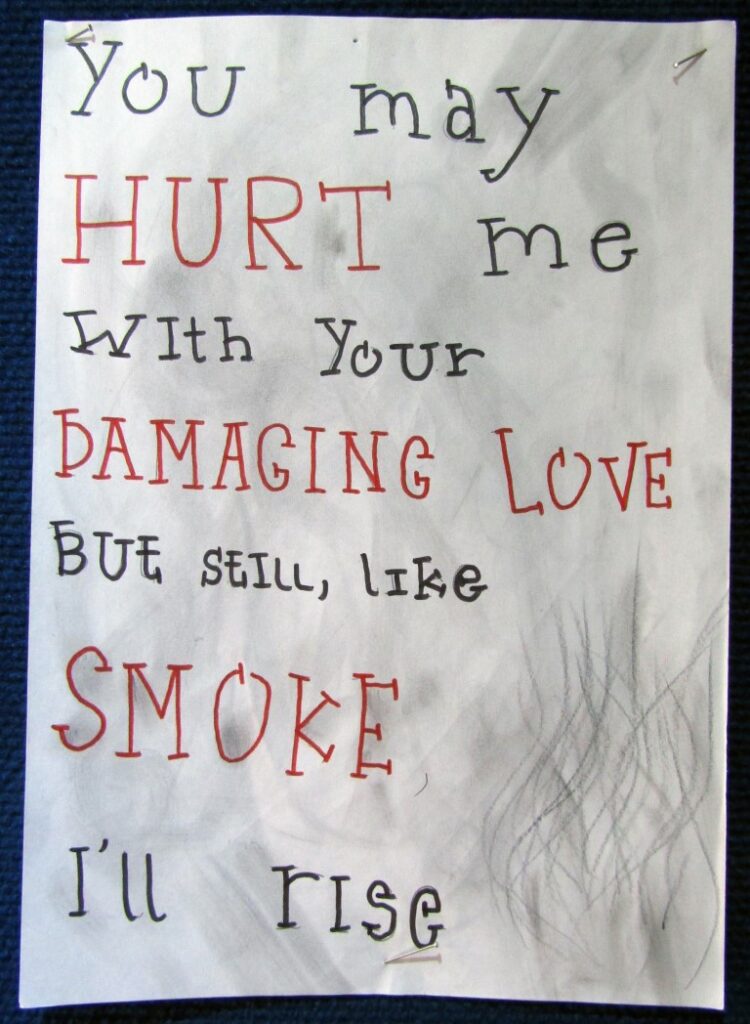 You may
HURT me
With Your
DAMAGING LOVE
BUt StILL, like
SMOKE
I'll rise